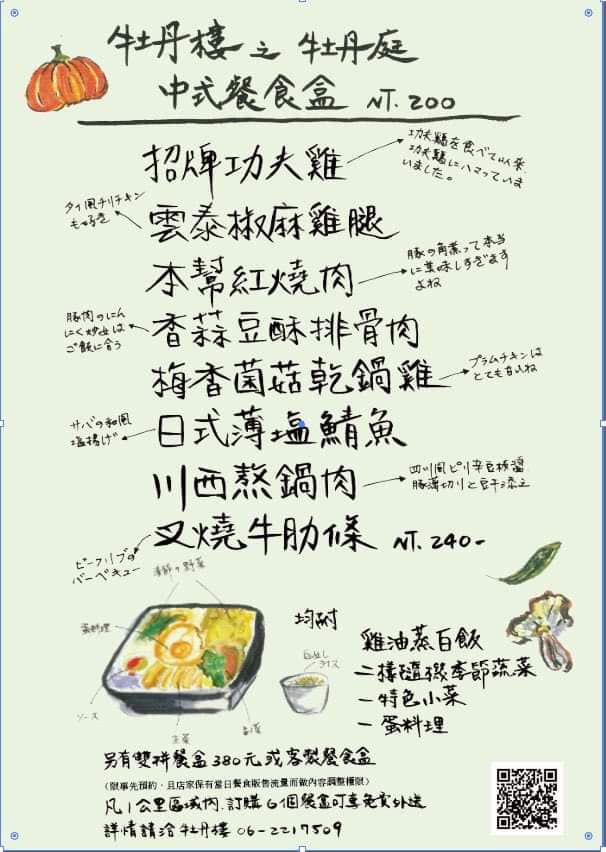 牡丹樓之牡丹庭
中式餐食盒 NT.200
招牌功夫雞
功夫鷄を食べて以来、
功夫鷄にハマっていま
いました。
雲泰椒麻雞腿
タイ風チリチキン
も好き
本幫紅燒肉
豚の角煮って本当
に美味しすぎます
よね
香蒜豆酥排骨肉
豚肉のにん
にく炒めは
ご飯に合う
梅香菌菇乾鍋雞
プラムチキンは
とても甘いね
日式薄塩鯖魚
サバの和風
塩揚げ
川西熬鍋肉
四川風ピリ辛豆板醬
豚薄切りと豆干添え
叉燒牛肋條 NT.240-
ビーフリブの
バーベキュー
季節の野菜
蛋料理
ソース
主菜
副菜
ライス
均附
雞油蒸白飯
二樣隨機季節蔬菜
一特色小菜
一蛋料理
另有雙拼餐盒380元或客製餐食盒
(限事先預約，且店家保有當日餐食販售流量而做內容調整權限)
凡1公里區域內,訂購6個餐盒可享免費外送
詳情請洽牡丹樓 06-2217509